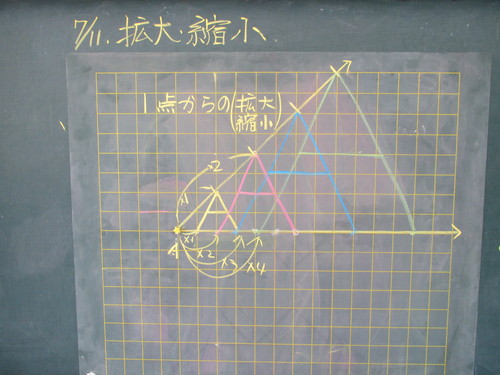 7/11. 拡大・縮小
1点からの(拡大
縮小)
×2
×1
A
×1
×2
×3
×4